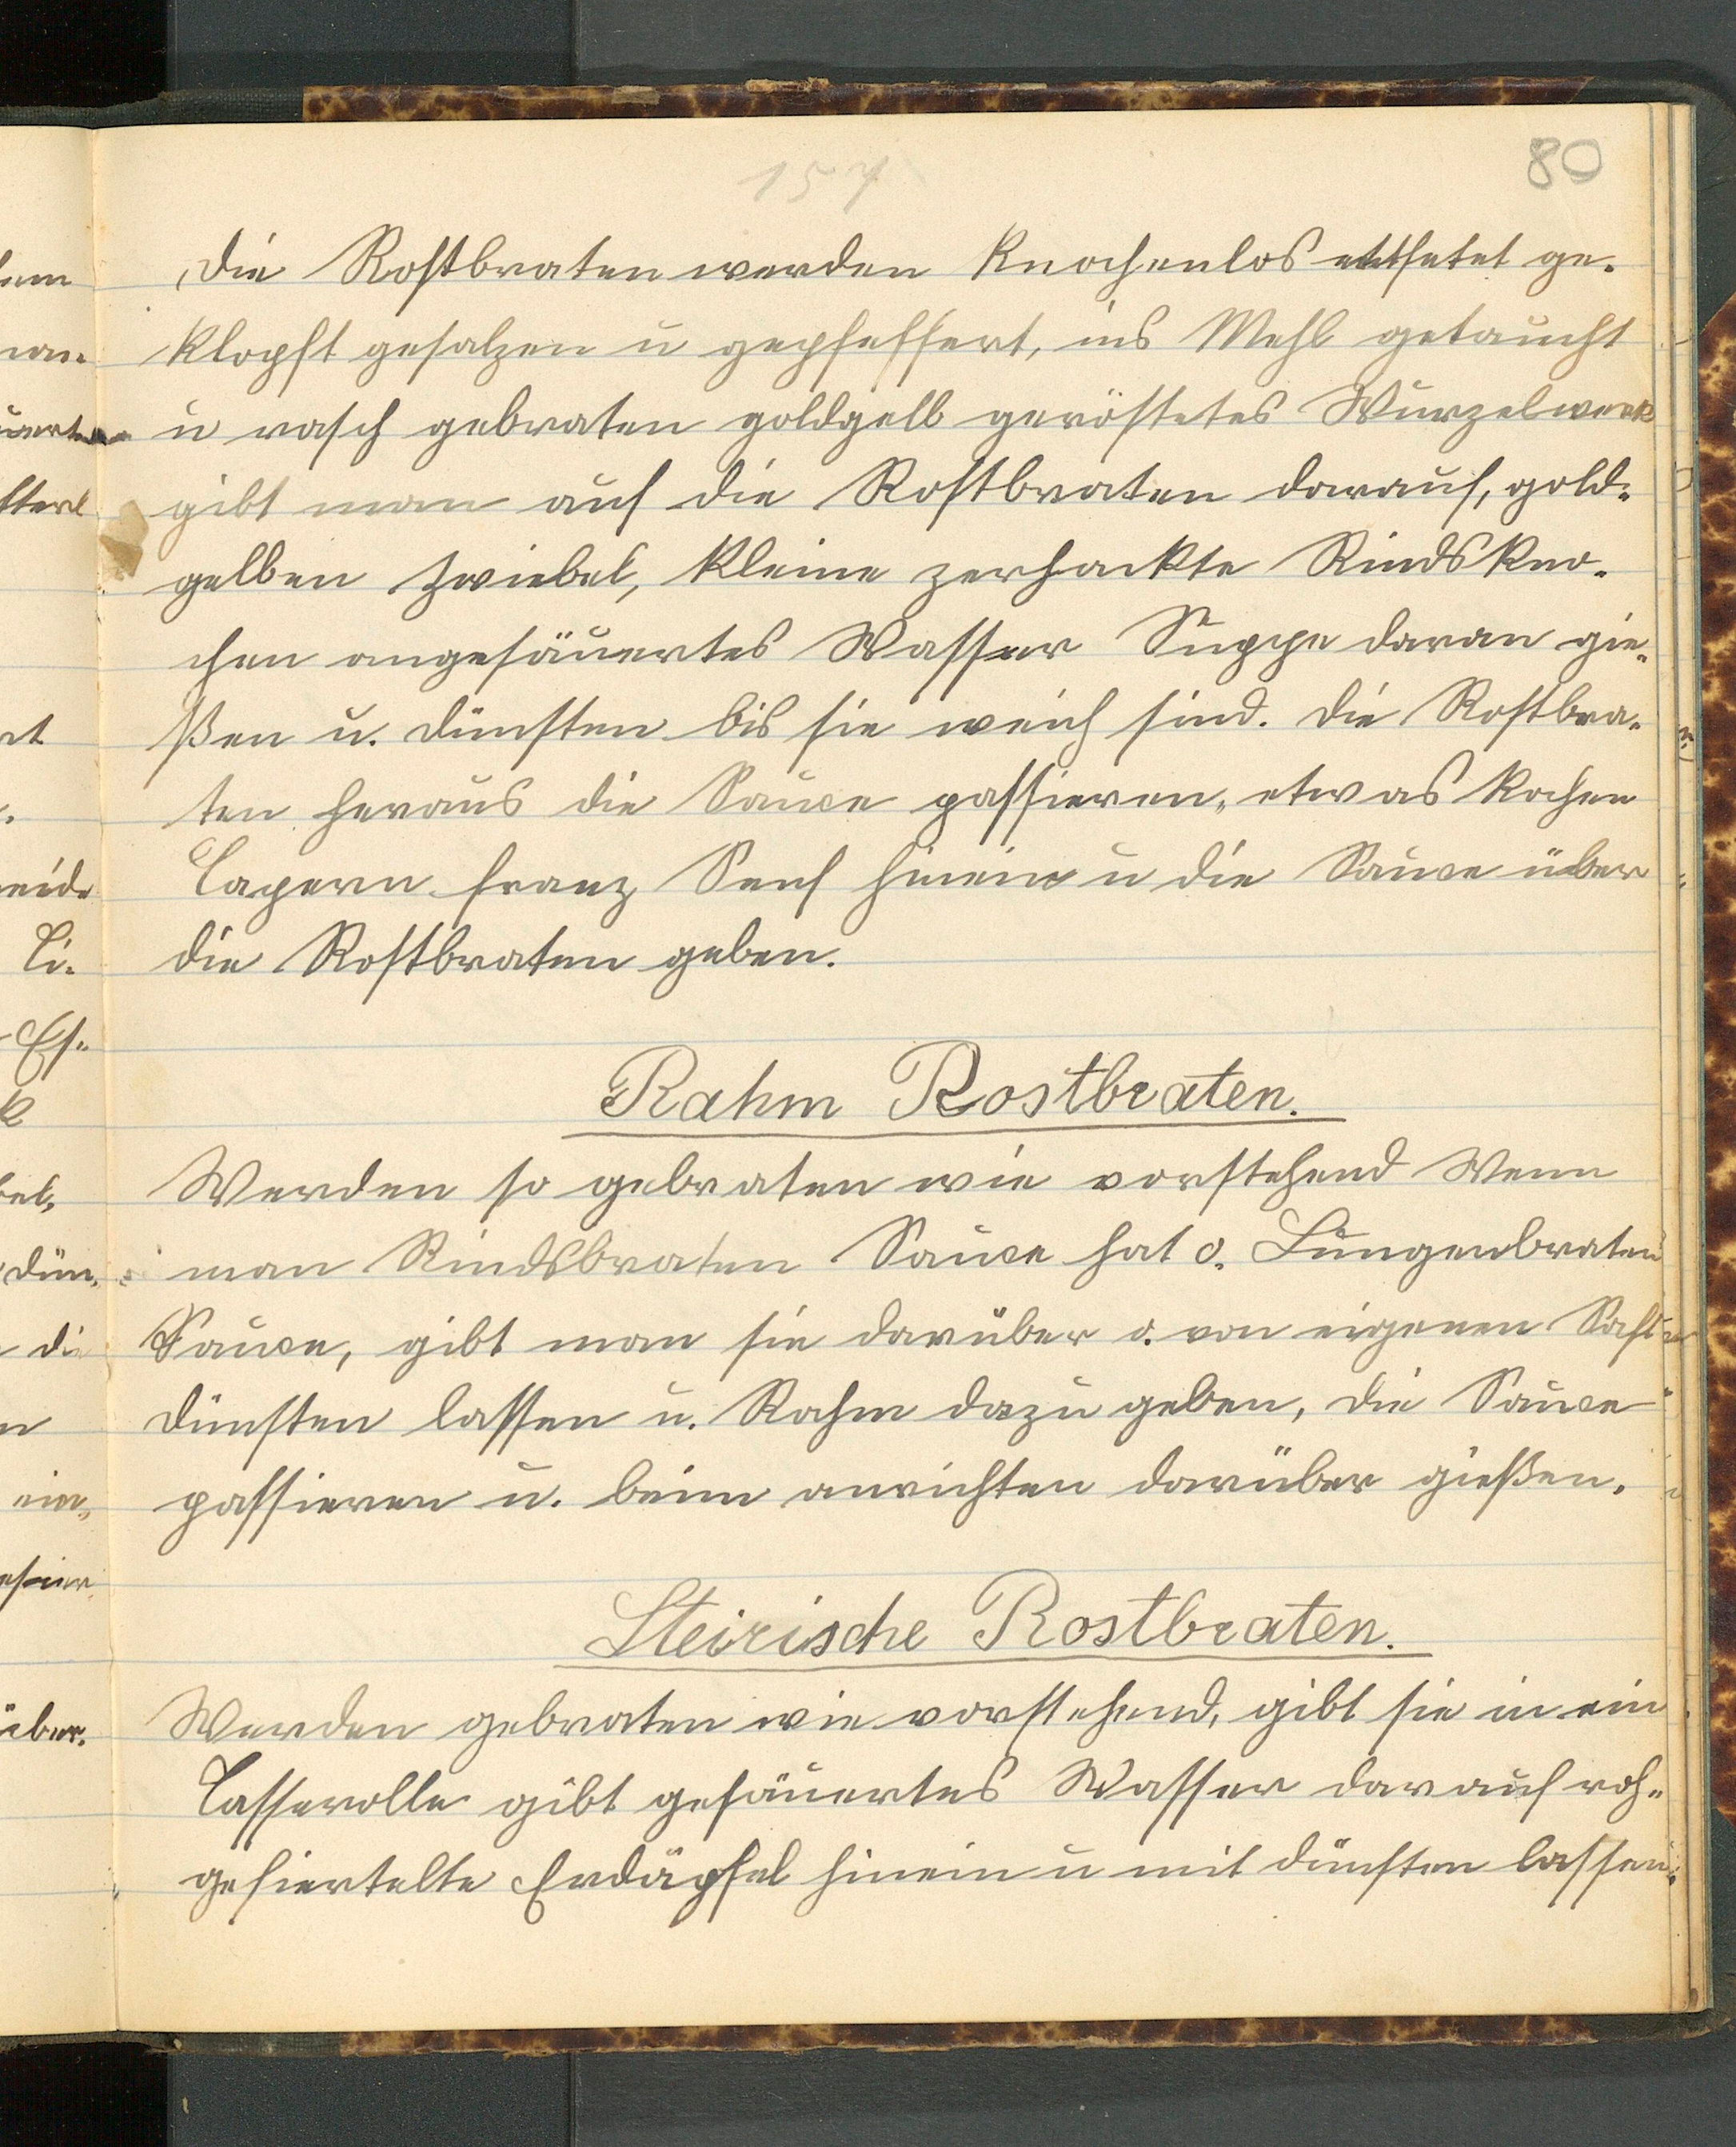 157
80
Die Rostbraten werden Knochenlos ge-
klopft gesalzen u gepfeffert, ins Mehl getaucht
u rasch gebraten goldgelb geröstetes Wurzelwerk
gibt man auf die Rostbraten darauf, gold-
gelben Zwiebel, kleine zerhackte Rindskno-
chen angesäuertes Wasser Suppe daran gie-
ßen u. dünsten bis sie weich sind. Die Rostbra-
ten heraus die Sauce passieren, etwas kochen
Capern franz Senf hinein u die Sauce über
die Rostbraten geben.
Rahm Rostbraten.
Werden so gebraten wie vorstehend Wenn
man Rindsbraten Sauce hat o. Lungenbraten
Sauce, gibt man sie darüber o. von eigenen Saft
dünsten lassen u. Rahm dazu geben, die Sauce
passieren u. beim anrichten darüber gießen.
Steirische Rostbraten.
Werden gebraten wie vorstehend, gibt sie in ein
Casserolle gibt gesäuertes Wasser darauf roh-
gefiertelte Erdäpfel hinein u mit dünsten lassen.